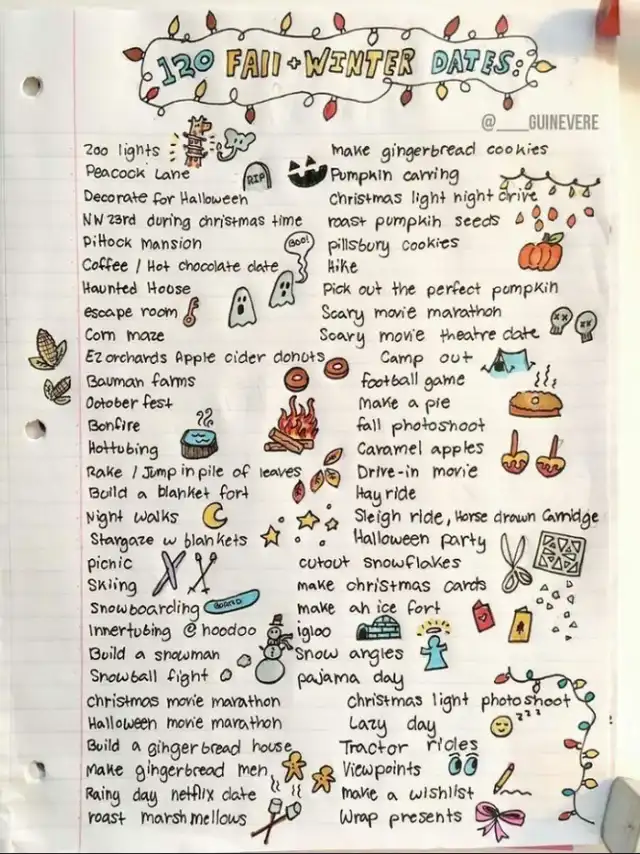 120 FALL + WINTER DATES:
@____GUINEVERE
zoo lights
Peacock Lane
RIP
Decorate for Halloween
NW 23rd during christmas time
Pittock Mansion
BOO!
Coffee / Hot chocolate date
Haunted House
escape room
Corn maze
EZ orchards Apple cider donuts
Bauman farms
October fest
Bonfire
Hottubing
Rake / Jump in pile of leaves
Build a blanket fort
Night walks
Stargaze w blankets
picnic
Skiing
Snowboarding
BOARD
Innertubing @ hoodoo
Build a snowman
Snowball fight
christmas movie marathon
Halloween movie marathon
Build a gingerbread house
Make gingerbread men
Rainy day netflix date
roast marshmellows
make gingerbread cookies
Pumpkin carving
christmas light night drive
roast pumpkin seeds
pillsbury cookies
Hike
Pick out the perfect pumpkin
Scary movie marathon
Scary movie theatre date
Camp out
football game
Make a pie
fall photoshoot
Caramel apples
Drive-in movie
Hay ride
Sleigh ride, Horse drawn Carridge
Halloween party
cutout snowflakes
make christmas cards
make an ice fort
igloo
Snow angles
pajama day
Christmas light photoshoot
Lazy day
zzz
Tractor rides
Viewpoints
make a wishlist
Wrap presents